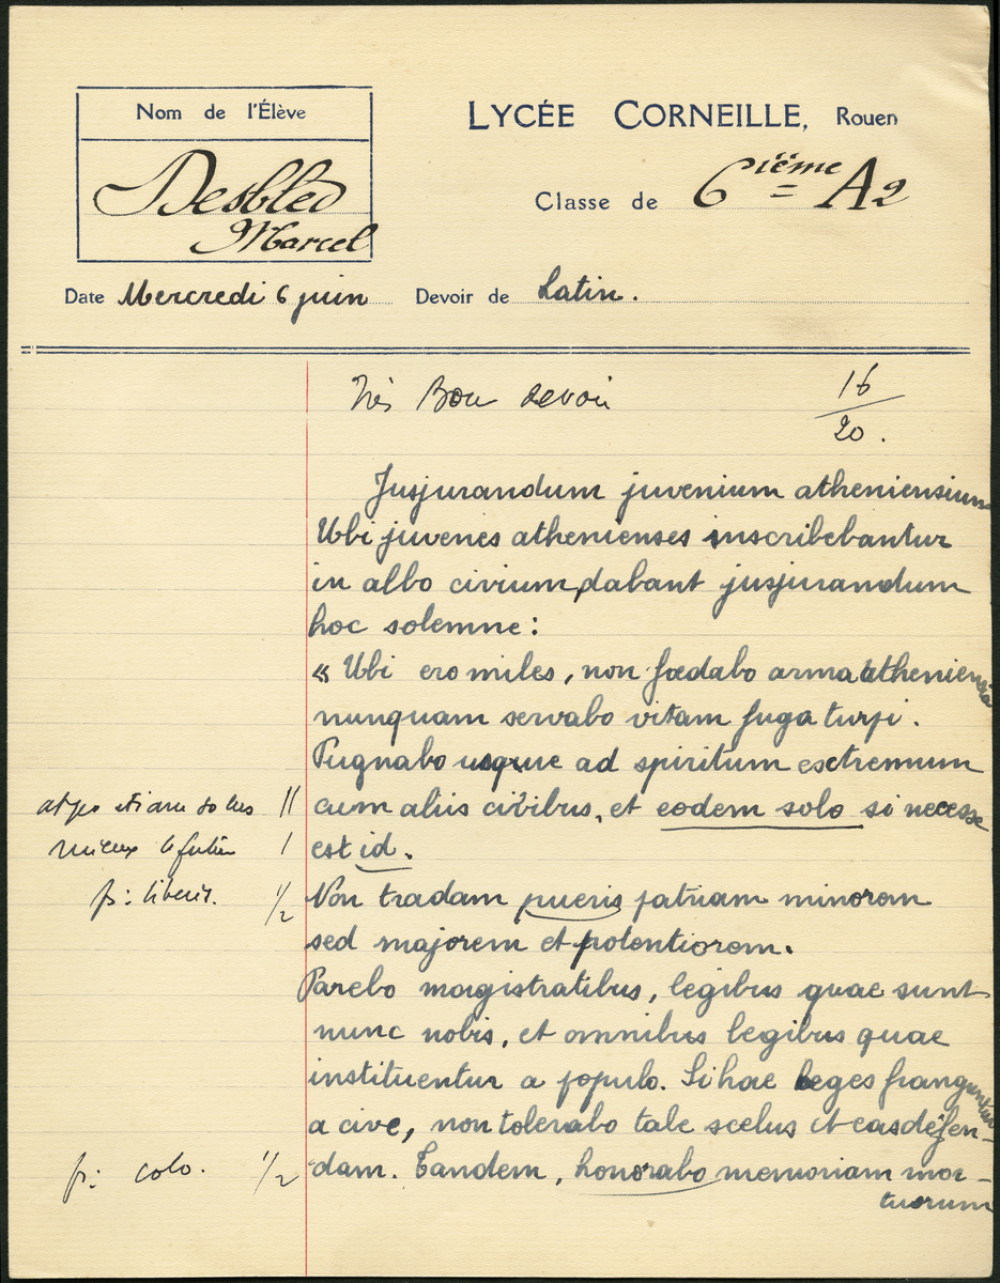 Nom de l'Élève
LYCÉE CORNEILLE, Rouen
Desbled
Marcel
Classe de 6ième A2
Date Mercredi 6 juin Devoir de Latin.
Très Bon devoir 16/20.
Jusjurandum juvenium atheniensium
Ubi juvenes athenienses inscribebantur
in albo civium, dabant jusjurandum
hoc solemne :
« Ubi ero miles, non fœdabo arma atheniensia
nunquam servabo vitam fuga turpi.
Pugnabo usque ad spiritum esctremum
atque etiam solus || cum aliis civibus, et eodem solo si necesse
mieux le futur | est id.
p: liberis. 1/2 Non tradam pueris patriam minorem
sed majorem et potentiorem.
Parebo magistratibus, legibus quae sunt
nunc nobis, et omnibus legibus quae
instituentur a populo. Si hae leges franguntur
a cive, non tolerabo tale scelus et eas défen-
p: colo. 1/2 dam. Tandem, honorabo memoriam mor-
tuorum